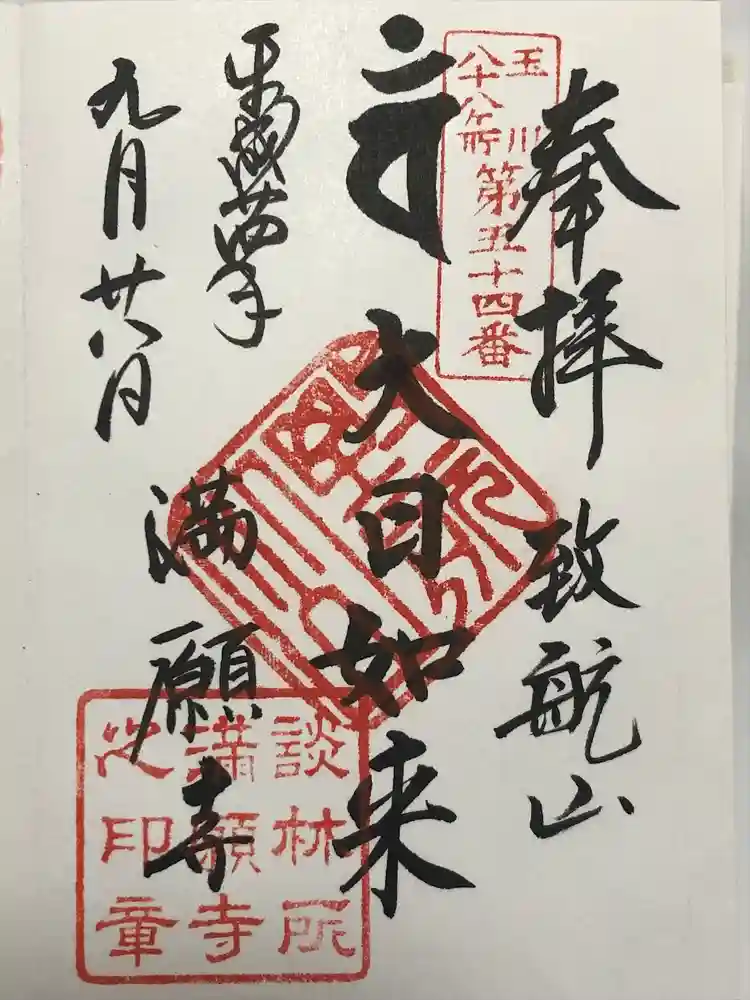 奉拝 致航山
玉川
八十八ヶ所
第五十四番
大日如来
平成
九月廿八日
満願寺
談林所
満願寺
之印章